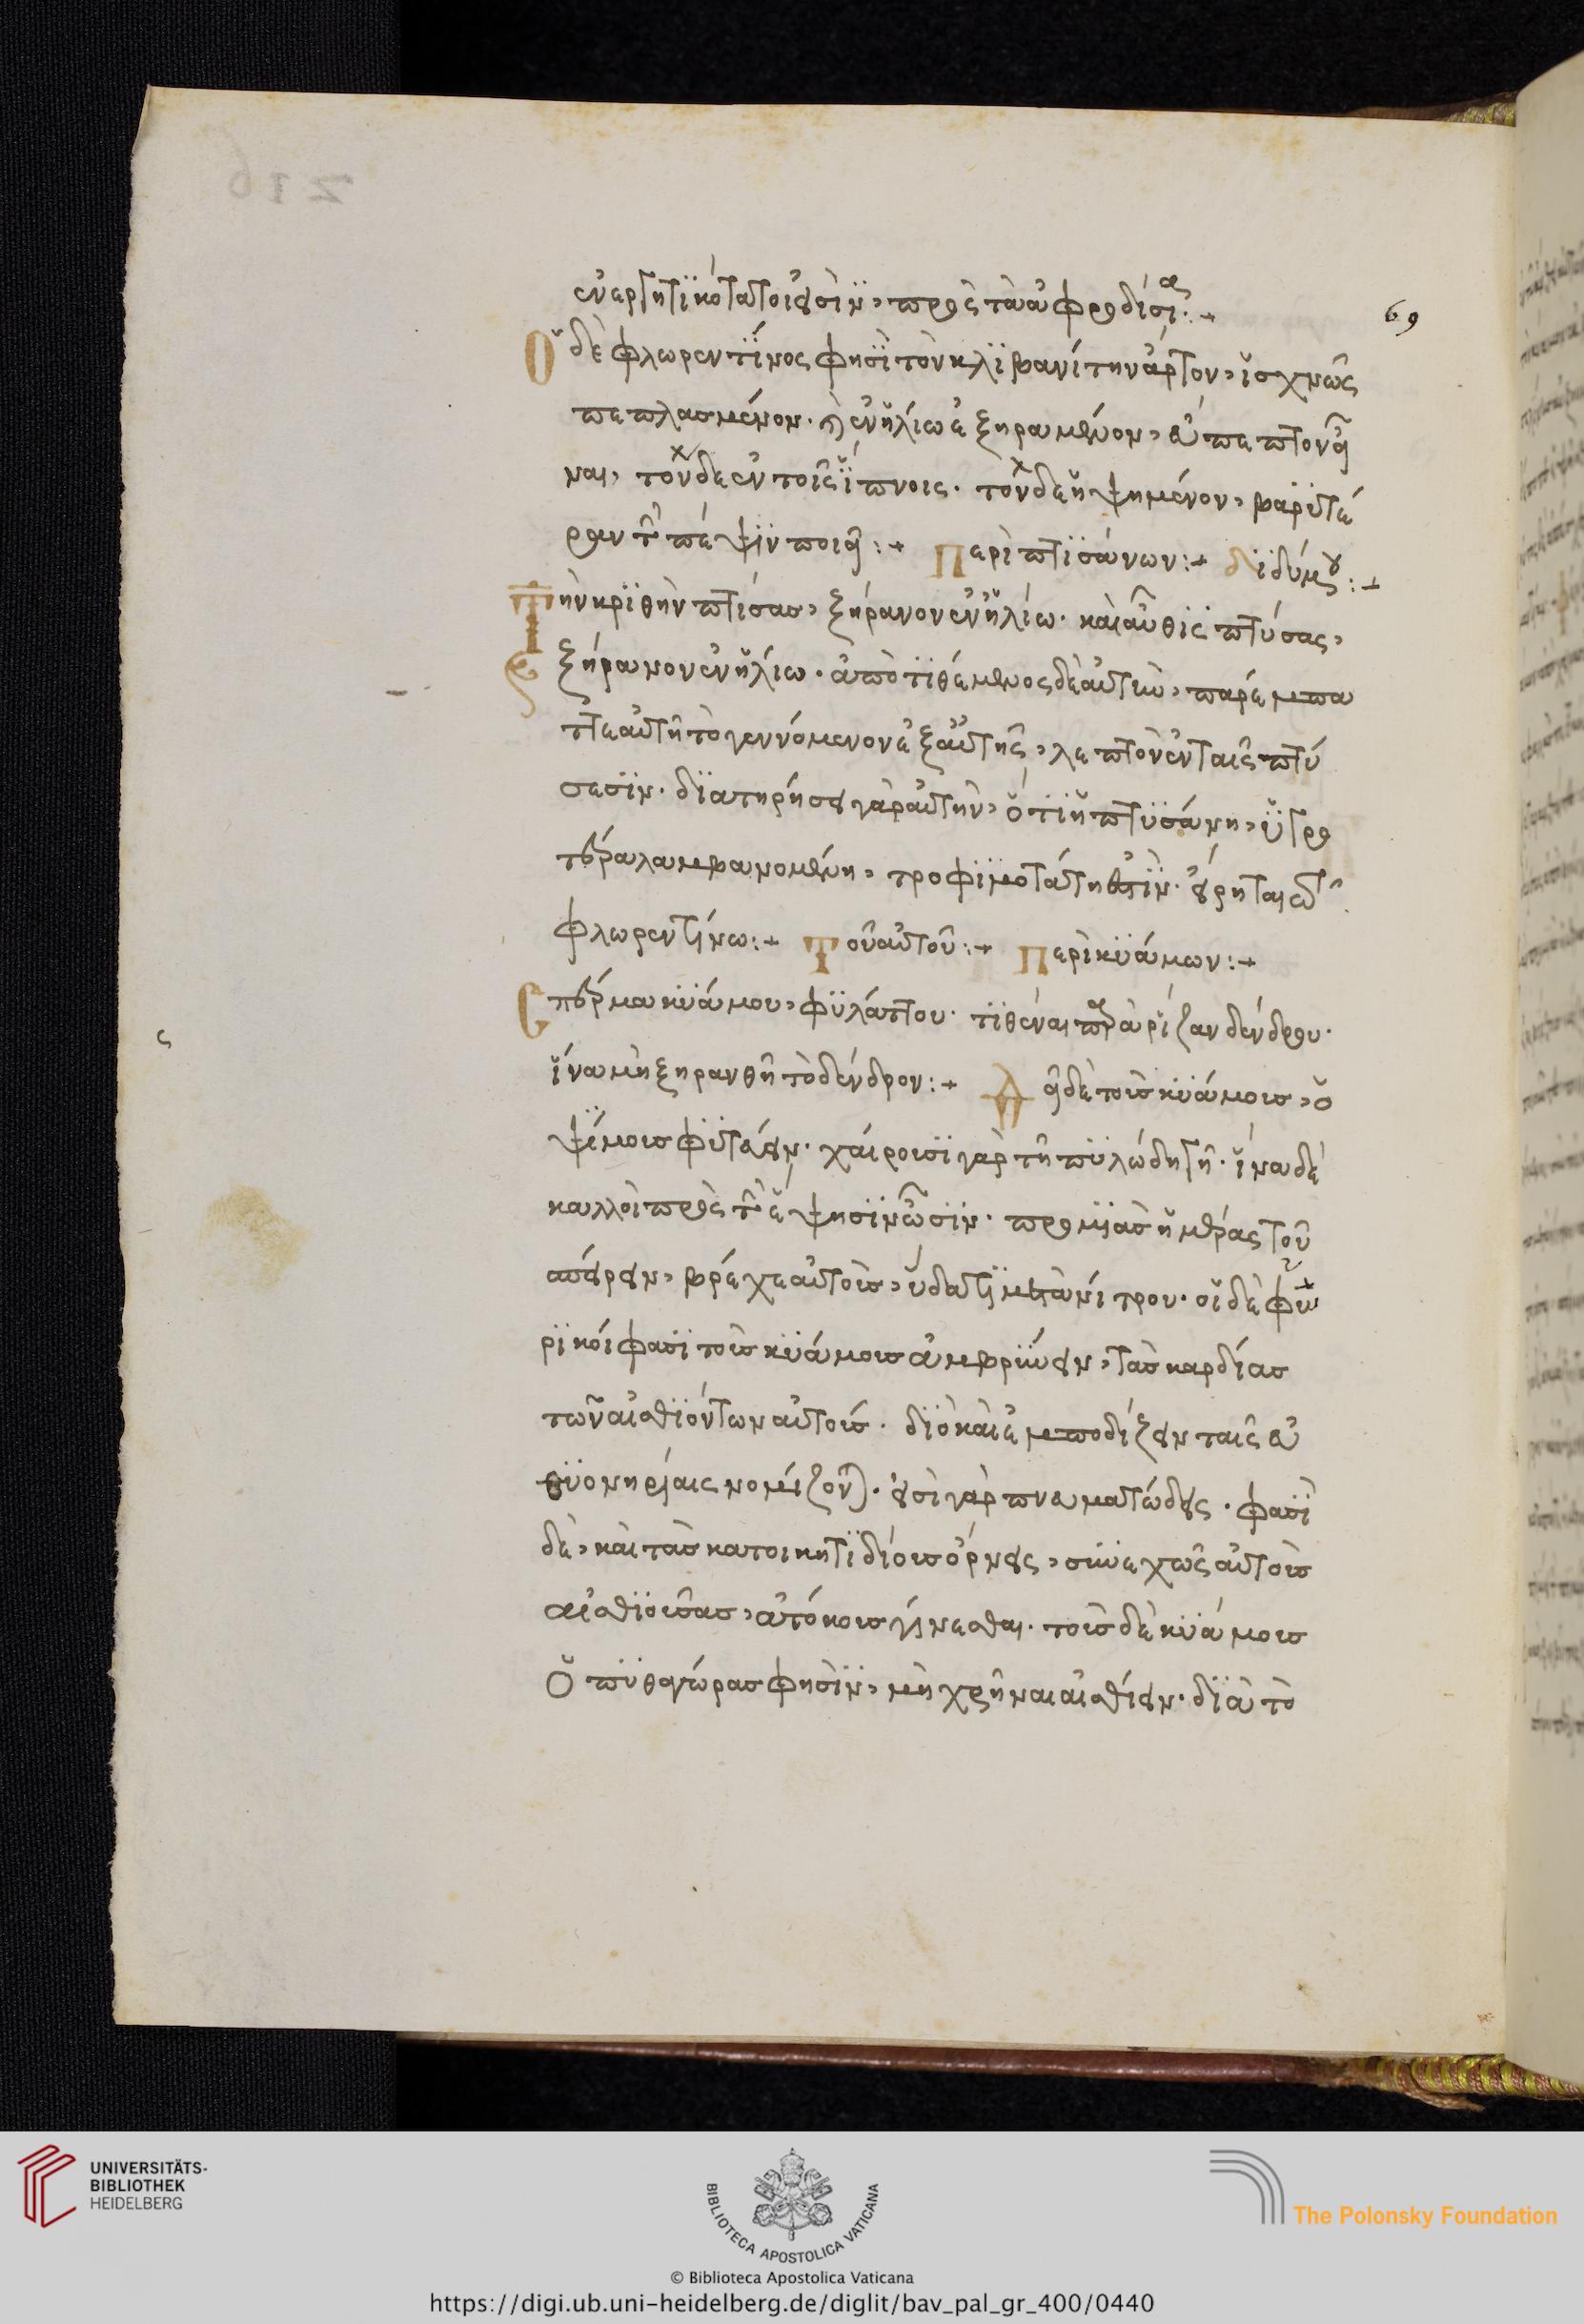 216
69
ἐνεργητικώτατοι εἰσὶν, πρὸς τὰ ἀφροδίσια:+
Ὁ δὲ φλωρεντῖνος φησὶ τὸν κλιβανίτην ἄρτον, ἰσχνῶς
πεπλασμένον. καὶ ἐν ἡλίω ἐξηραμμένον, εὔπεπτον εἶ
ναι, τὸν δὲ ἐν τοῖς ἵπνοις. τὸν δὲ ἡψημένον, βαρυτέ
ραν τὴν πέψιν ποιεῖ:+ Περὶ πτισάνων:+ διδύμου:+
Τὴν κριθὴν πτίσας, ξήρανον ἐν ἡλίω. καὶ αὖθις πτύσας,
ξήρανον ἐν ἡλίω. ἀποτιθέμενος δὲ αὐτὴν, παρέμπα
ττε αὐτῆ τὸ γεννόμενον ἐξ αὐτῆς, λεπτὸν ἐν ταῖς πτύ
σεσιν. διατηρήσει γὰρ αὐτὴν, ὅτι ἡ πτυσάνη, ὑγρο
τέρα λαμβανομένη, τροφιμοτάτη ἐστὶν. εἴρηται ἐν τῶ
φλωρεντίνω:+ Τοῦ αὐτοῦ:+ Περὶ κυάμων:+
Σπέρμα κυάμου, φυλάττου. τιθέναι παρὰ ῥίζαν δένδρου.
ἵνα μὴ ξηρανθῆ τὸ δένδρον:+ Δεῖ δὲ τοὺς κυάμους, ὀ
ψίμους φυτεύειν. χαίρουσι γὰρ τῆ πυλώδη γῆ. ἵνα δὲ
καλλοὶ πρὸς τὴν ἕψησιν ὦσιν. πρὸ μιᾶς ἡμέρας τοῦ
σπείρειν, βρέχε αὐτοὺς, ὕδατι μετὰ νίτρου. οἱ δὲ φυ
ρικοί φασι τοὺς κυάμους ἀμβρύνειν, τὰς καρδίας
τῶν αἰσθιόντων αὐτούς. διὸ καὶ ἐμποδίζειν ταῖς εὐ
θυονηρίαις νομίζονται. εἰσὶ γὰρ πνευματώδεις. φασὶ
δὲ, καὶ τὰς κατοικητιδίους ὄρνεις, συνεχῶς αὐτοὺς
αἰσθιούσας, ἀτόκους γίνεσθαι. τοὺς δὲ κυάμους
ὁ πυθαγώρας φησὶν, μὴ χρῆναι αἰσθίειν. διὰ τὸ
UNIVERSITÄTS-
BIBLIOTHEK
HEIDELBERG
BIBLIOTECA APOSTOLICA VATICANA
The Polonsky Foundation
© Biblioteca Apostolica Vaticana
https://digi.ub.uni-heidelberg.de/diglit/bav_pal_gr_400/0440